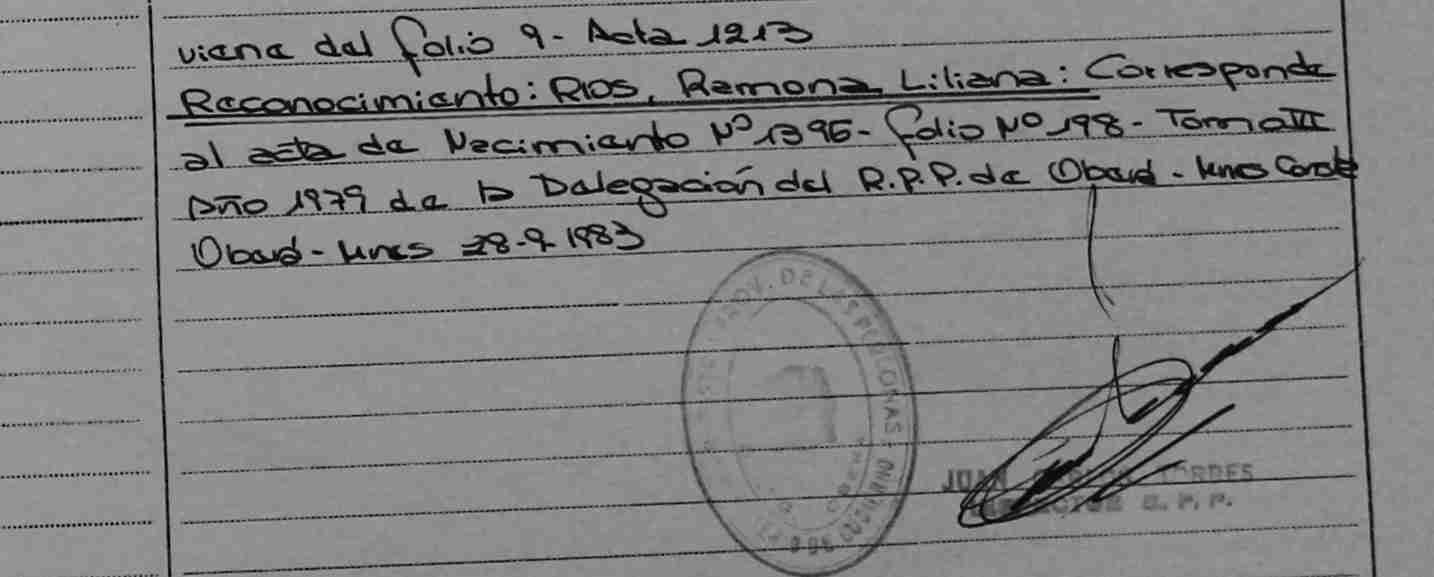 viene del folio 9- Acta 1213
Reconocimiento: RIOS, Ramona Liliana: Corresponde
al acta de Nacimiento Nº 1396- folio Nº 198- Tomo
Año 1979 de la Delegación del R.P.P. de Oberá - Mnes
Oberá - Mnes 28-9-1983
PROV. DE LAS PERSONAS
JUAN TORRES
DIRECTOR R. P. P.